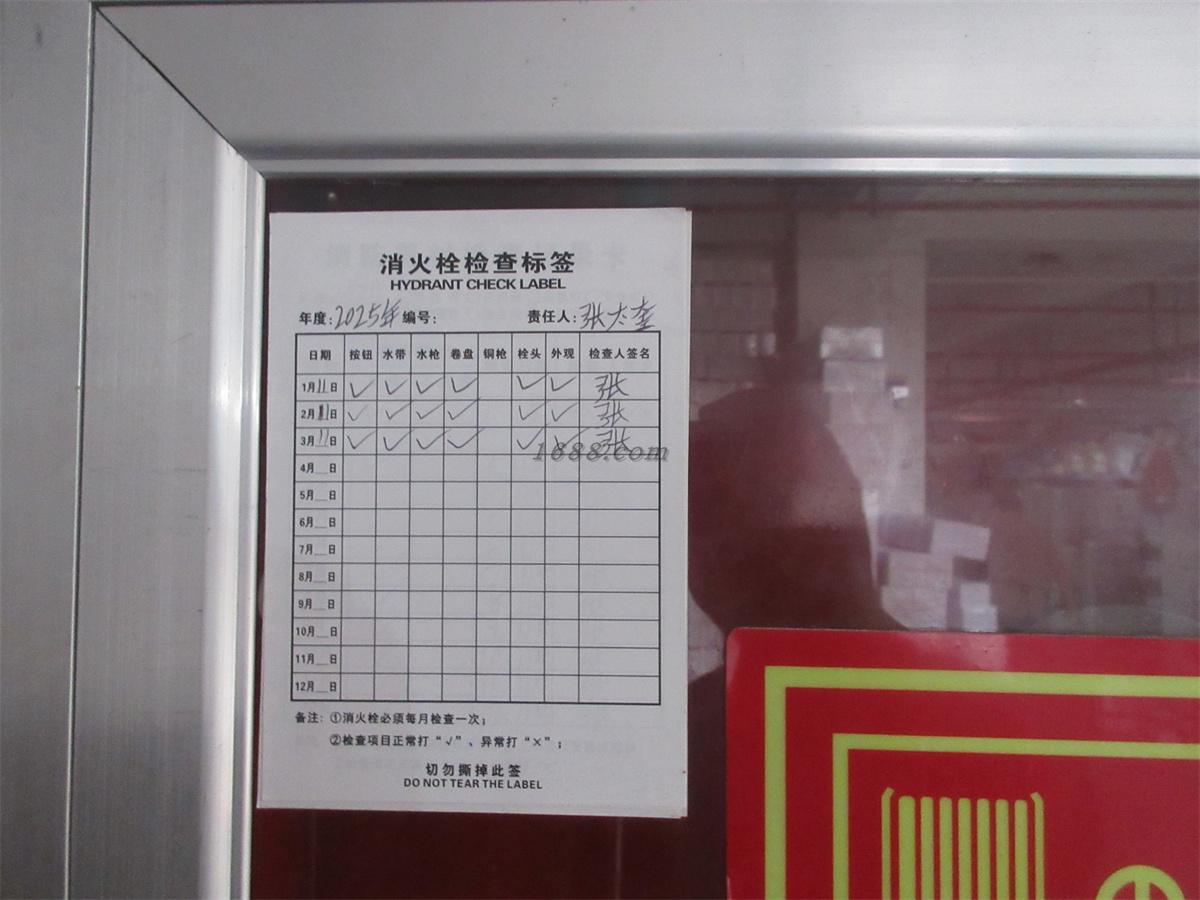 消火栓检查标签
HYDRANT CHECK LABEL
年度:2025年 编号: 责任人:张大奎
日期 按钮 水带 水枪 卷盘 铜枪 栓头 外观 检查人签名
1月11日 ✓ ✓ ✓ ✓ ✓ ✓ 张
2月11日 ✓ ✓ ✓ ✓ ✓ ✓ 张
3月11日 ✓ ✓ ✓ ✓ ✓ ✓ 张
1688.com
4月__日
5月__日
6月__日
7月__日
8月__日
9月__日
10月__日
11月__日
12月__日
备注: ①消火栓必须每月检查一次;
②检查项目正常打“√”、异常打“×”;
切勿撕掉此签
DO NOT TEAR THE LABEL